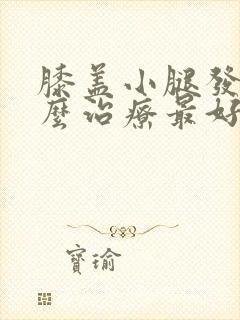 膝盖小腿發
麼治療最好
寶瑜